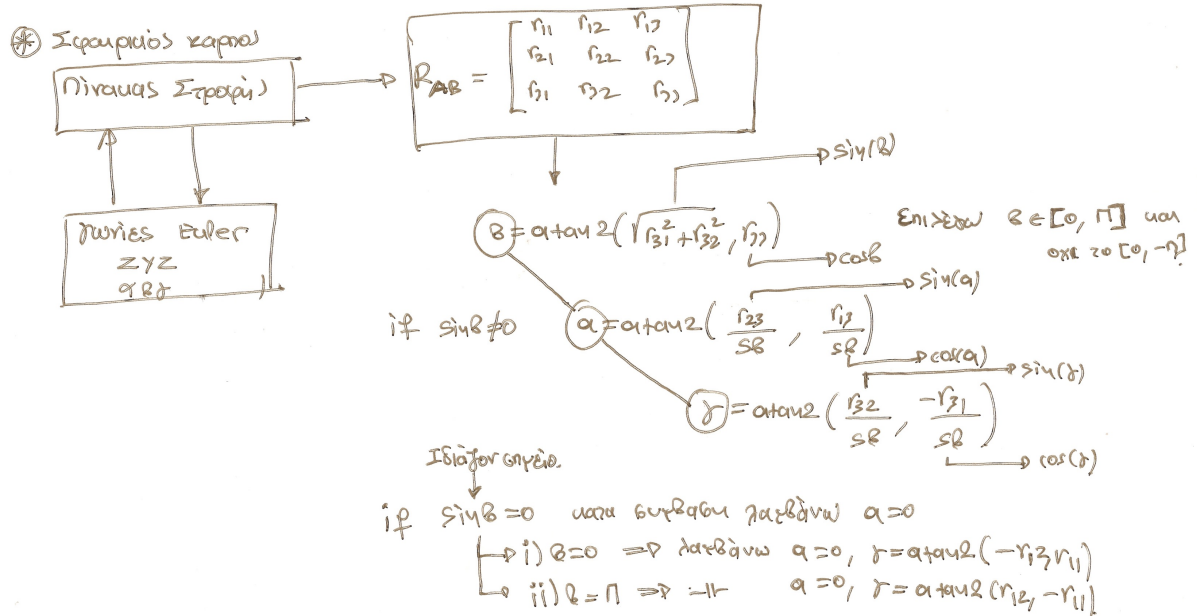 * Σφαιρικός καρπός
Πίνακας Στροφής
R_AB = [ r11 r12 r13
r21 r22 r23
r31 r32 r33 ]
γωνίες Euler
ZYZ
αβγ
sin(β)
β = atan2(√(r31² + r32²), r33)
cosβ
Επιλέγω β ∈ [0, π] και
όχι το [0, -π]
sin(α)
if sinβ≠0 α = atan2( r23/sβ , r13/sβ )
cos(α)
sin(γ)
γ = atan2( r32/sβ , -r31/sβ )
cos(γ)
Ιδιάζον σημείο.
if sinβ=0 κατα συμβαση λαμβάνω α=0
i) β=0 => λαμβάνω α=0, γ=atan2(-r12, r11)
ii) β=π => -||- α=0, γ=atan2(r12, -r11)